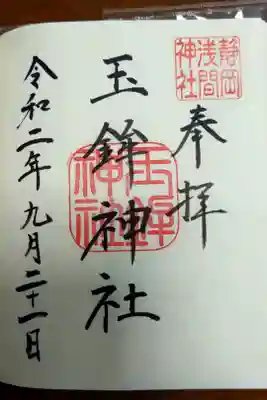 静岡
浅間
神社
奉拝
玉鉾神社
玉鉾
神社
令和二年九月二十一日